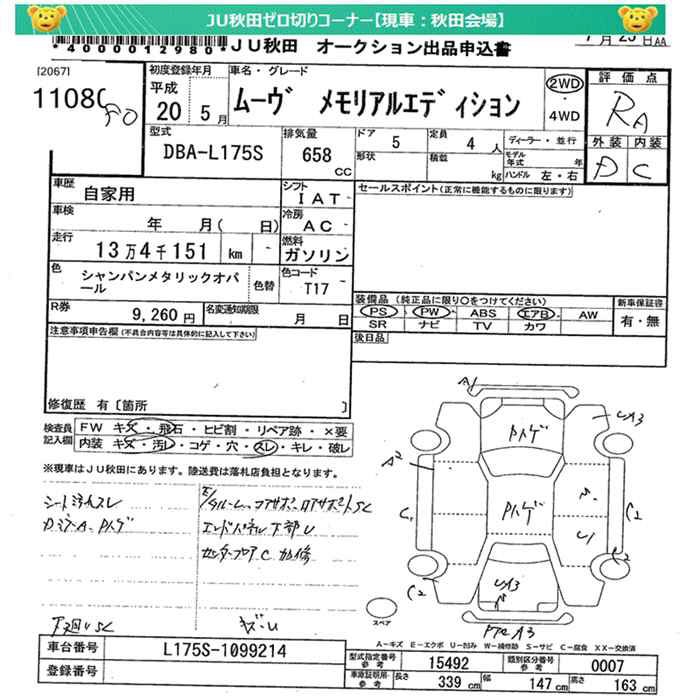 JU秋田ゼロ切りコーナー【現車：秋田会場】
*4000012980* JU秋田 オークション出品申込書
7月25日AA
[2067]
1108
初度登録年月 車名・グレード 評価点
平成 20 5月 ムーヴ メモリアルエディション 2WD ・ 4WD RA
型式 排気量 ドア 定員 ディーラー・並行 外装 内装
DBA-L175S 658 CC 5 4人 D C
形状 積載 kg モデル年式 年 ハンドル 左・右
車歴 自家用 シフト IAT セールスポイント(正常に機能するものに限ります)
車検 年 月( 日) 冷房 AC
走行 13万4千151 km 燃料 ガソリン
色 シャンパンメタリックオパール 色替 色コード T17
装備品 (純正品に限り○をつけてください) 新車保証書
PS PW ABS エアB AW 有・無
SR ナビ TV カワ
R券 9,260円 名変通知期限 月 日
後日品
注意事項申告欄(不具合内容等は具体的に記入して下さい)
修復歴 有〔箇所 〕
検査員記入欄 FW キズ・飛石・ヒビ割・リペア跡・×要
内装 キズ・汚レ・コゲ・穴・スレ・キレ・破レ
※現車はJU秋田にあります。陸送費は落札店負担となります。
A1
Pハゲ
UA3
Pハゲ
C2
U1
C2
UA3
スペア
エンドパネル下部U
センターフロアC 加修
下廻りSC
キズ・U
A-キズ E-エクボ U-凹み W-補修跡 S-サビ C-腐食 XX-交換済
車台番号 L175S-1099214
登録番号
型式指定番号 参考 15492 類別区分番号 参考 0007
車庫証明用 参考 長さ 339 cm 幅 147 cm 高さ 163 cm